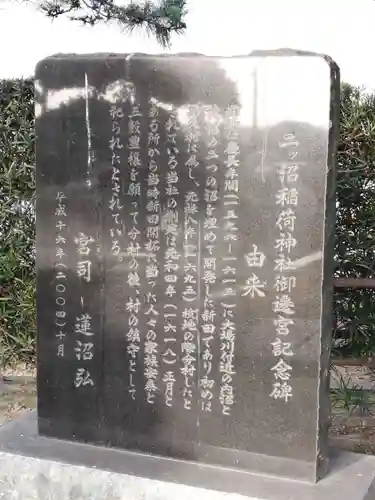 二ッ沼稲荷神社御遷宮記念碑
由来
は慶長年間(一五九六〜一六一五)に大場川付近の西沼と
の二つの沼を埋めて開発した新田であり初めは
に属し元禄八年(一六九五)検地の際分村したと
れている当社の創建は元和四年(一六一八)正月と
から当時新田開拓に当った人々の家族安泰と
五穀豊穣を願って分村の後、村の鎮守として
祀られたとされている。
平成十六年(二〇〇四)十月
宮司 蓮沼弘